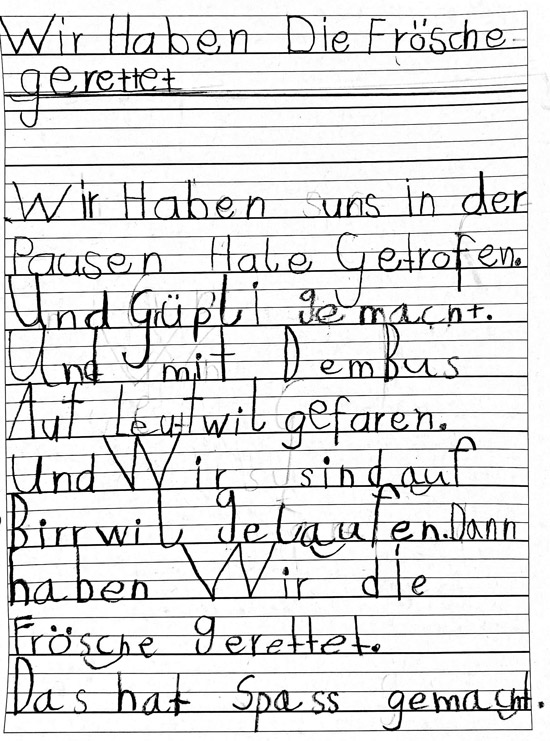 Wir Haben Die Frösche
gerettet
Wir Haben uns in der
Pausen Hale Getrofen.
Und Grüpli gemacht.
Und mit DemBus
Auf Leutwil gefaren.
Und Wir sind auf
Birrwil gelaufen. Dann
haben Wir die
Frösche gerettet.
Das hat Spass gemacht.